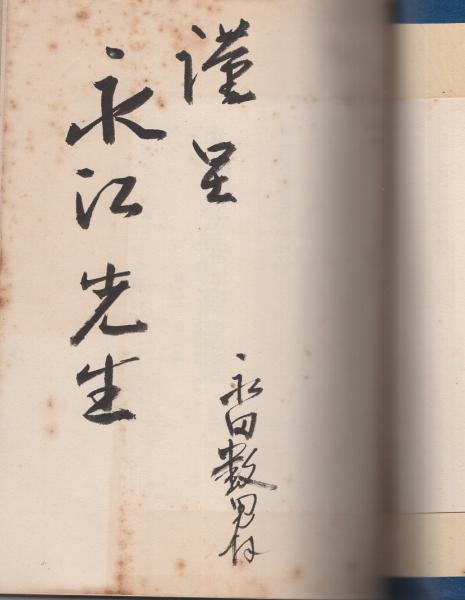 謹呈
永江先生
永田数男